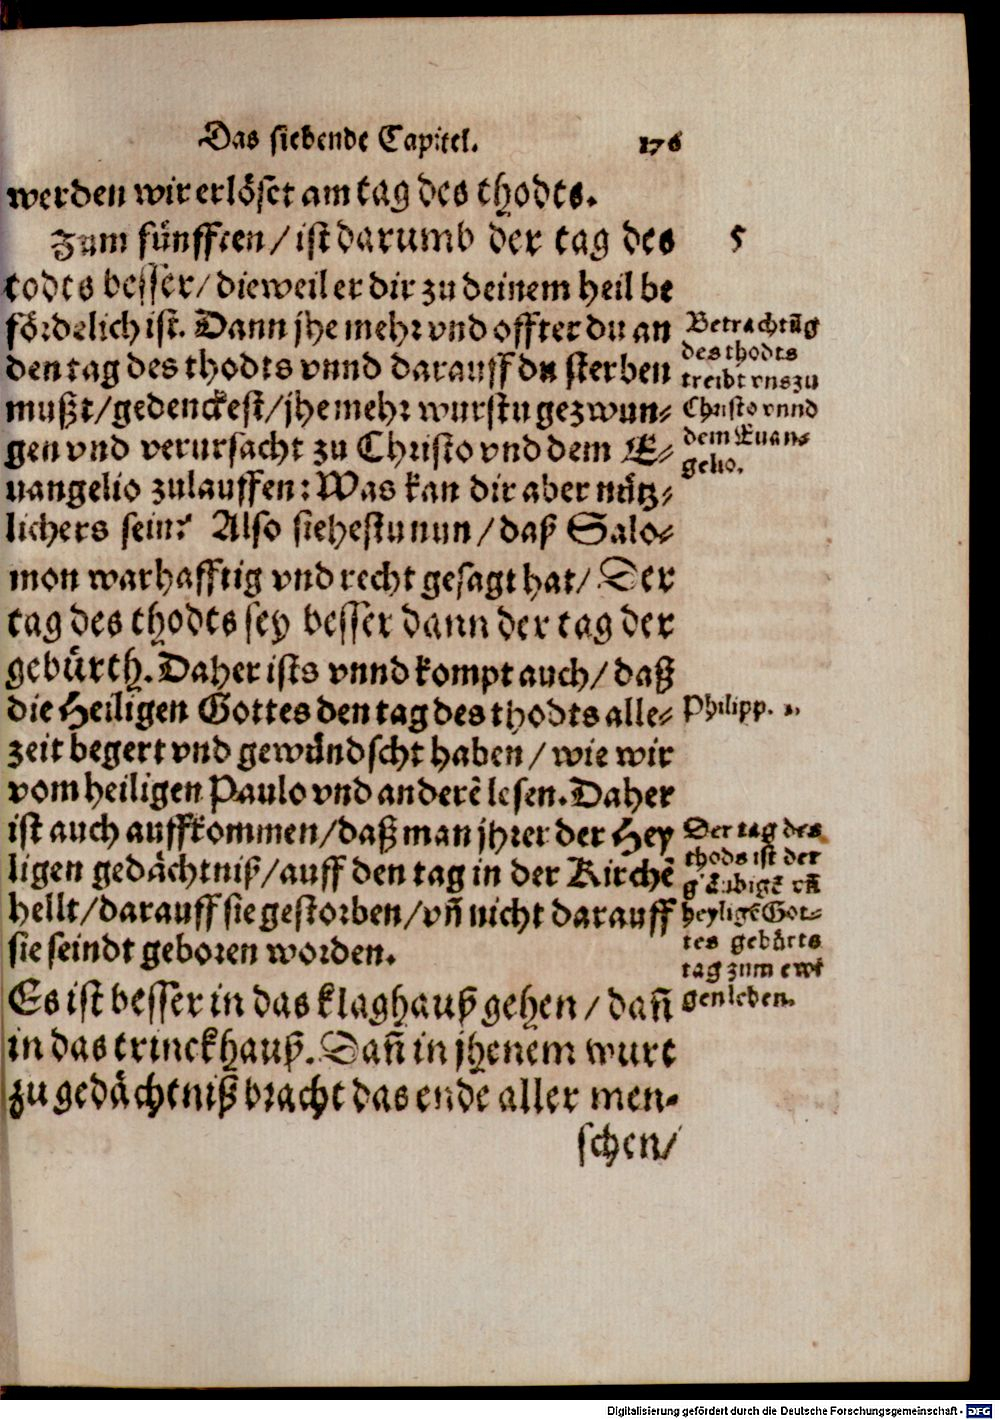 Das siebende Capitel. 176
werden wir erlöset am tag des thodts.
Zum fünfften / ist darumb der tag des
todts besser / dieweil er dir zu deinem heil be
förderlich ist. Dann jhe mehr vnd offter du an
den tag des thodts vnnd darauff du sterben
mußt / gedenckest / jhe mehr wurstu gezwun⸗
gen vnd verursacht zu Christo vnd dem E⸗
uangelio zulauffen: Was kan dir aber nütz⸗
lichers sein? Also siehestu nun / daß Salo⸗
mon warhafftig vnd recht gesagt hat / Der
tag des thodts sey besser dann der tag der
gebürth. Daher ists vnnd kompt auch / daß
die Heiligen Gottes den tag des thodts alle⸗
zeit begert vnd gewündscht haben / wie wir
vom heiligen Paulo vnd anderẽ lesen. Daher
ist auch auffkommen / daß man jhrer der Hey
ligen gedächtniß / auff den tag in der Kirchẽ
hellt / darauff sie gestorben / vñ nicht darauff
sie seindt geboren worden.
Es ist besser in das klaghauß gehen / dañ
in das trinckhauß. Dañ in jhenem wurt
zu gedächtniß bracht das ende aller men⸗
schen /
5
Betrachtũg
des thodts
treibt vns zu
Christo vnnd
dem Euan⸗
gelio.
Philipp. 1.
Der tag des
thods ist der
gläubigẽ vñ
heyligẽ Got⸗
tes gebürts
tag zum ewi
gen leben.
Digitalisierung gefördert durch die Deutsche Forschungsgemeinschaft - DFG